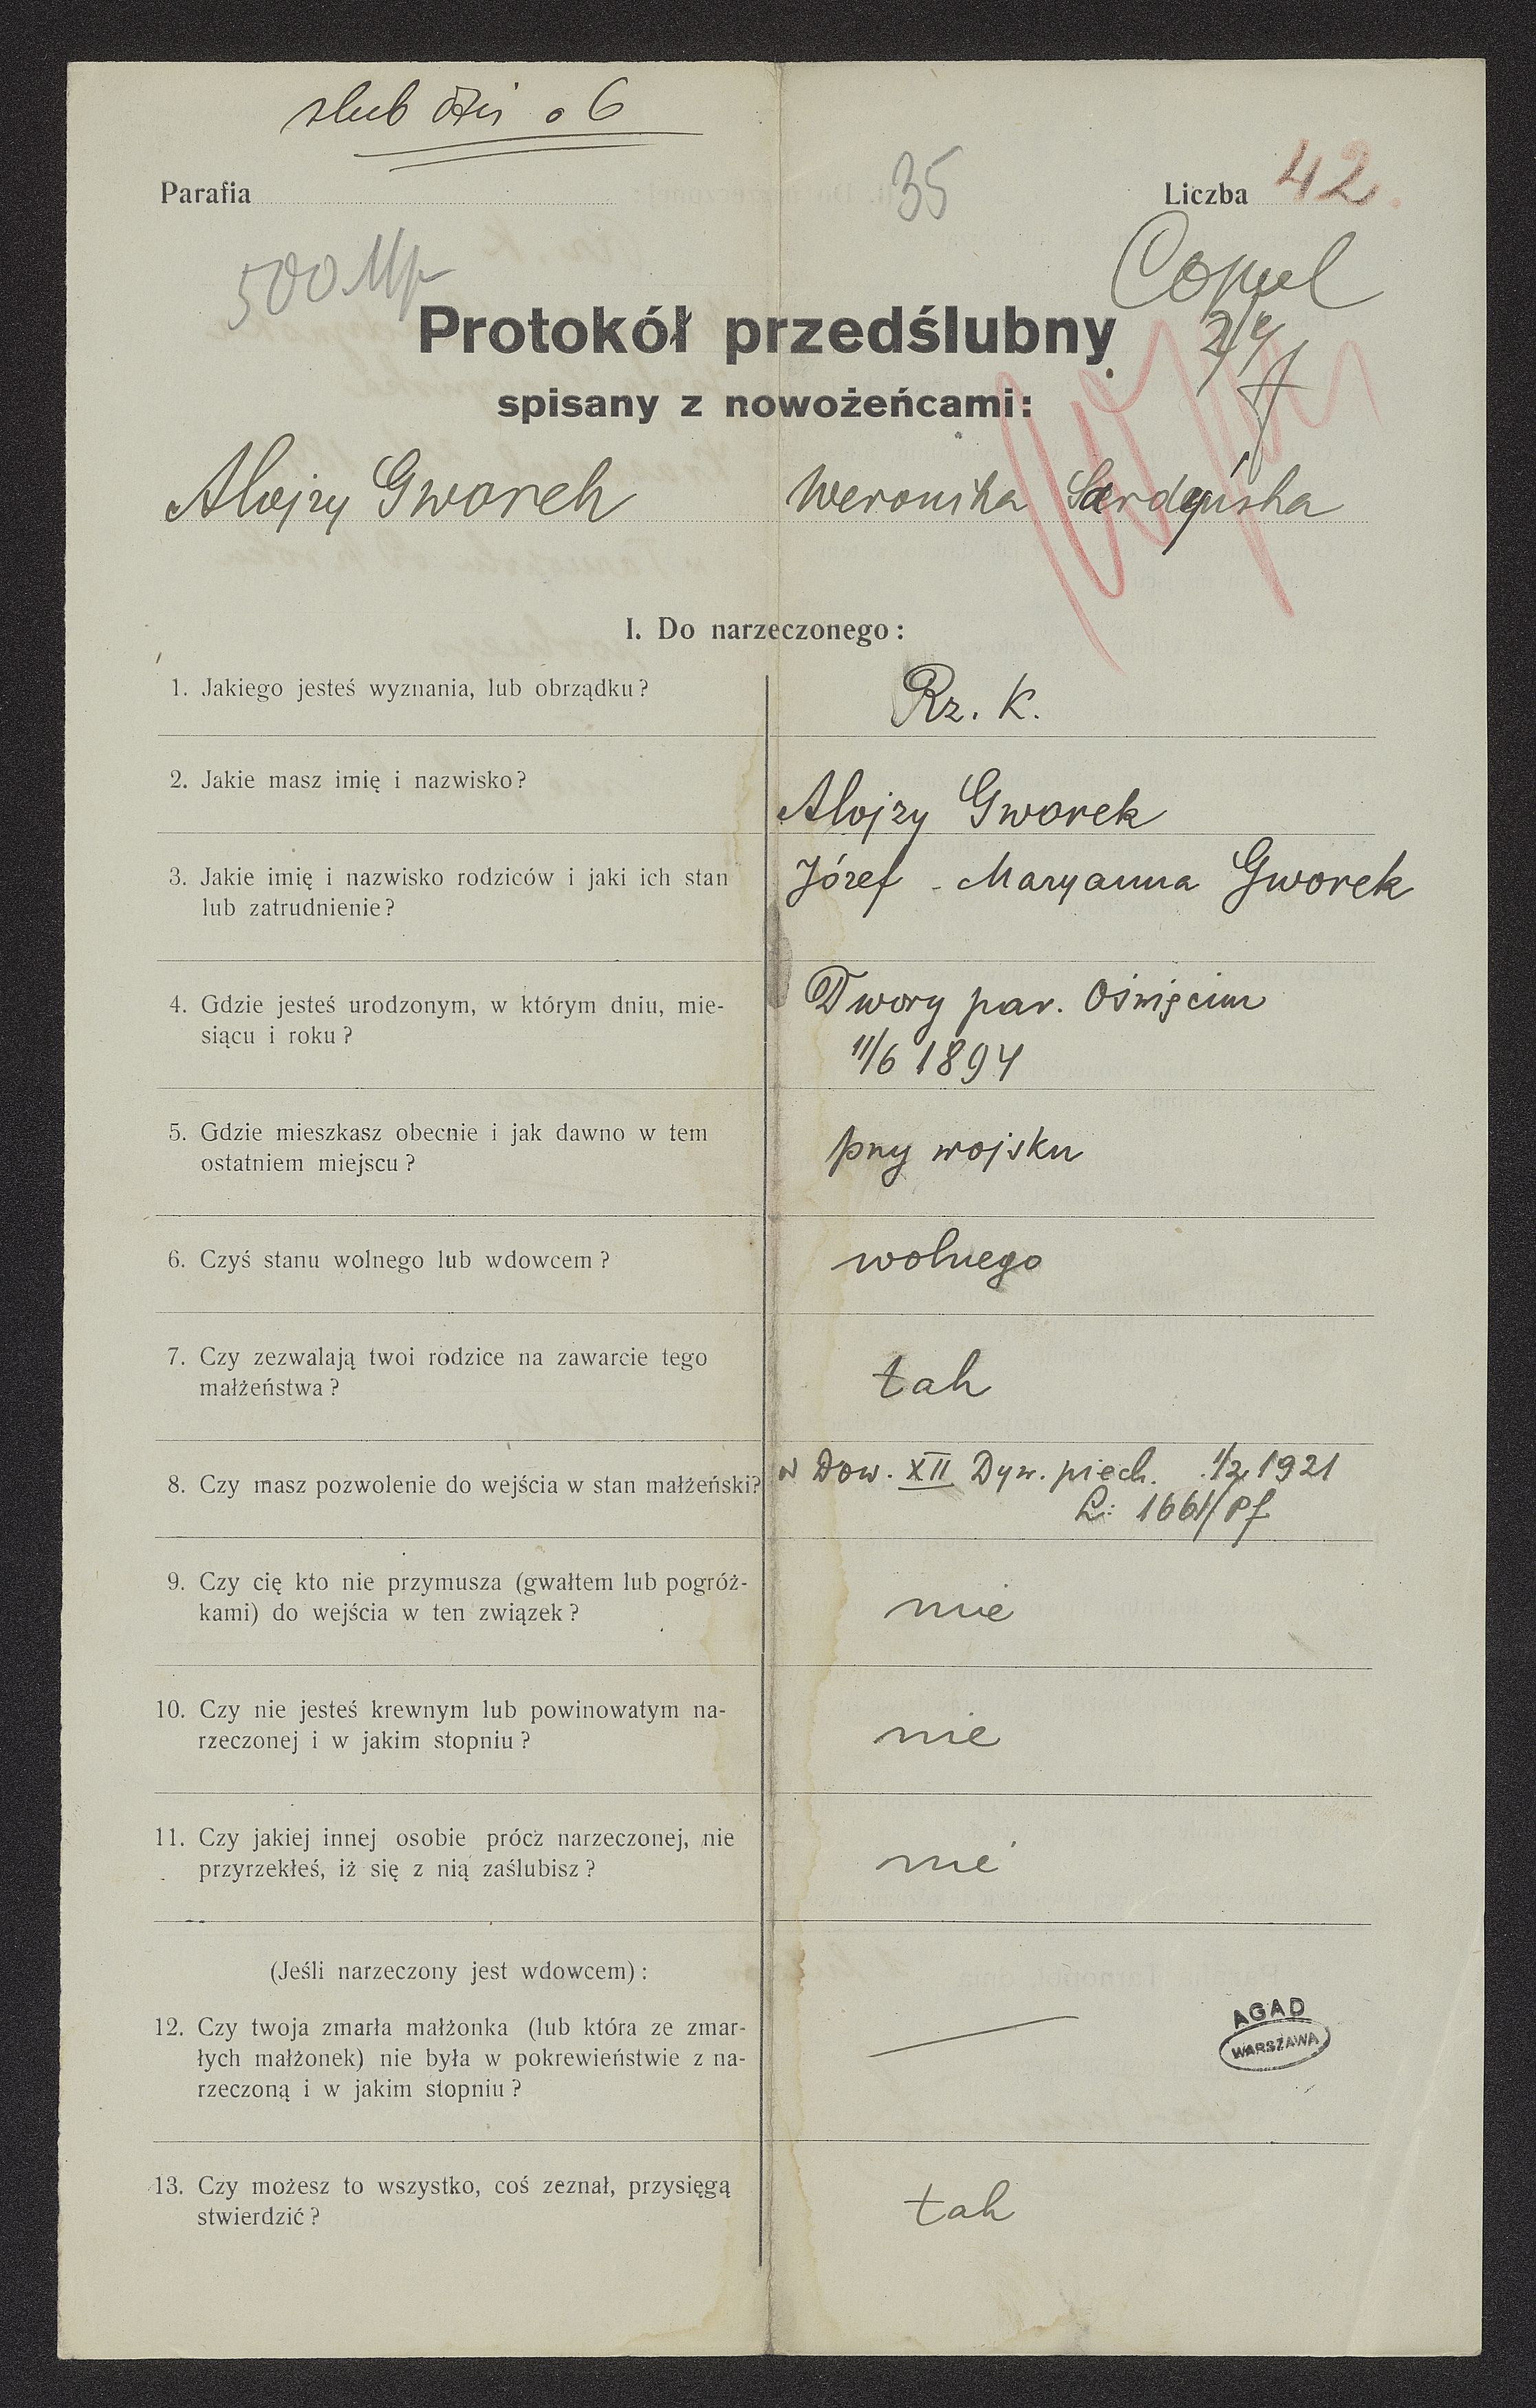 slub dziś o 6
Parafia 35 Liczba 42.
500 Mp Copul
Protokół przedślubny 2/4
spisany z nowożeńcami:
Alojzy Gworek Weronika Sardyńska
I. Do narzeczonego:
1. Jakiego jesteś wyznania, lub obrządku? Rz. K.
2. Jakie masz imię i nazwisko? Alojzy Gworek
3. Jakie imię i nazwisko rodziców i jaki ich stan Józef - Maryanna Gworek
lub zatrudnienie?
4. Gdzie jesteś urodzonym, w którym dniu, mie- Dwory par. Oświęcim
siącu i roku? 11/6 1894
5. Gdzie mieszkasz obecnie i jak dawno w tem przy wojsku
ostatniem miejscu?
6. Czyś stanu wolnego lub wdowcem? wolnego
7. Czy zezwalają twoi rodzice na zawarcie tego tak
małżeństwa?
8. Czy masz pozwolenie do wejścia w stan małżeński? Dow. XII Dyw. piech. 1/2 1921
L: 1661/Pf
9. Czy cię kto nie przymusza (gwałtem lub pogróż- nie
kami) do wejścia w ten związek?
10. Czy nie jesteś krewnym lub powinowatym na- nie
rzeczonej i w jakim stopniu?
11. Czy jakiej innej osobie prócz narzeczonej, nie nie
przyrzekłeś, iż się z nią zaślubisz?
(Jeśli narzeczony jest wdowcem):
12. Czy twoja zmarła małżonka (lub która ze zmar- AGAD
łych małżonek) nie była w pokrewieństwie z na- WARSZAWA
rzeczoną i w jakim stopniu?
13. Czy możesz to wszystko, coś zeznał, przysięgą tak
stwierdzić?